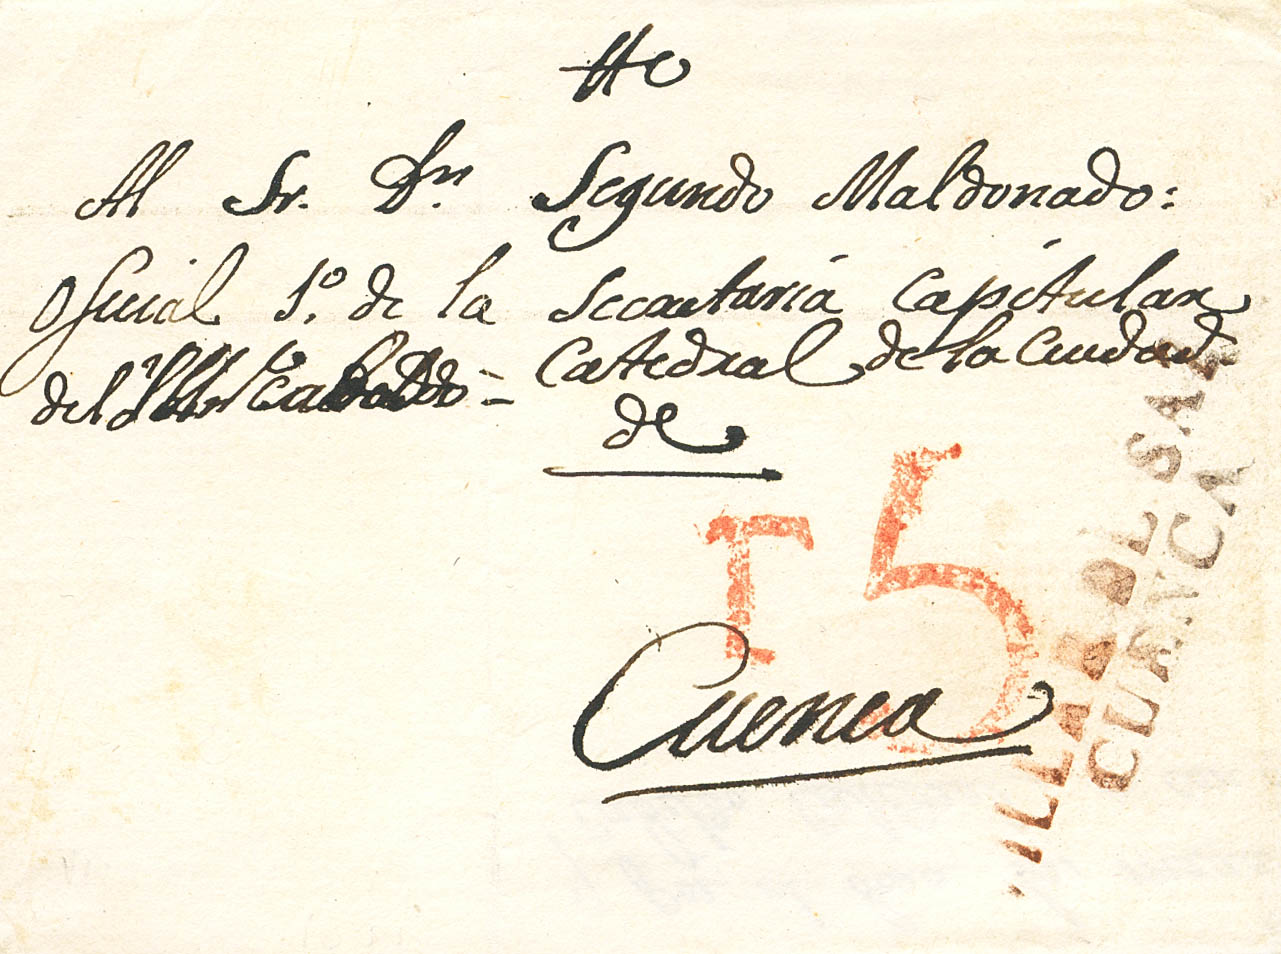 Al Sr. Dn. Segundo Maldonado:
Oficial 1º. de la Secretaría Capitular
del Cabildo = Catedral de la Ciudad
de
15
Cuenca
VILLAR DEL SAZ
CUANCA